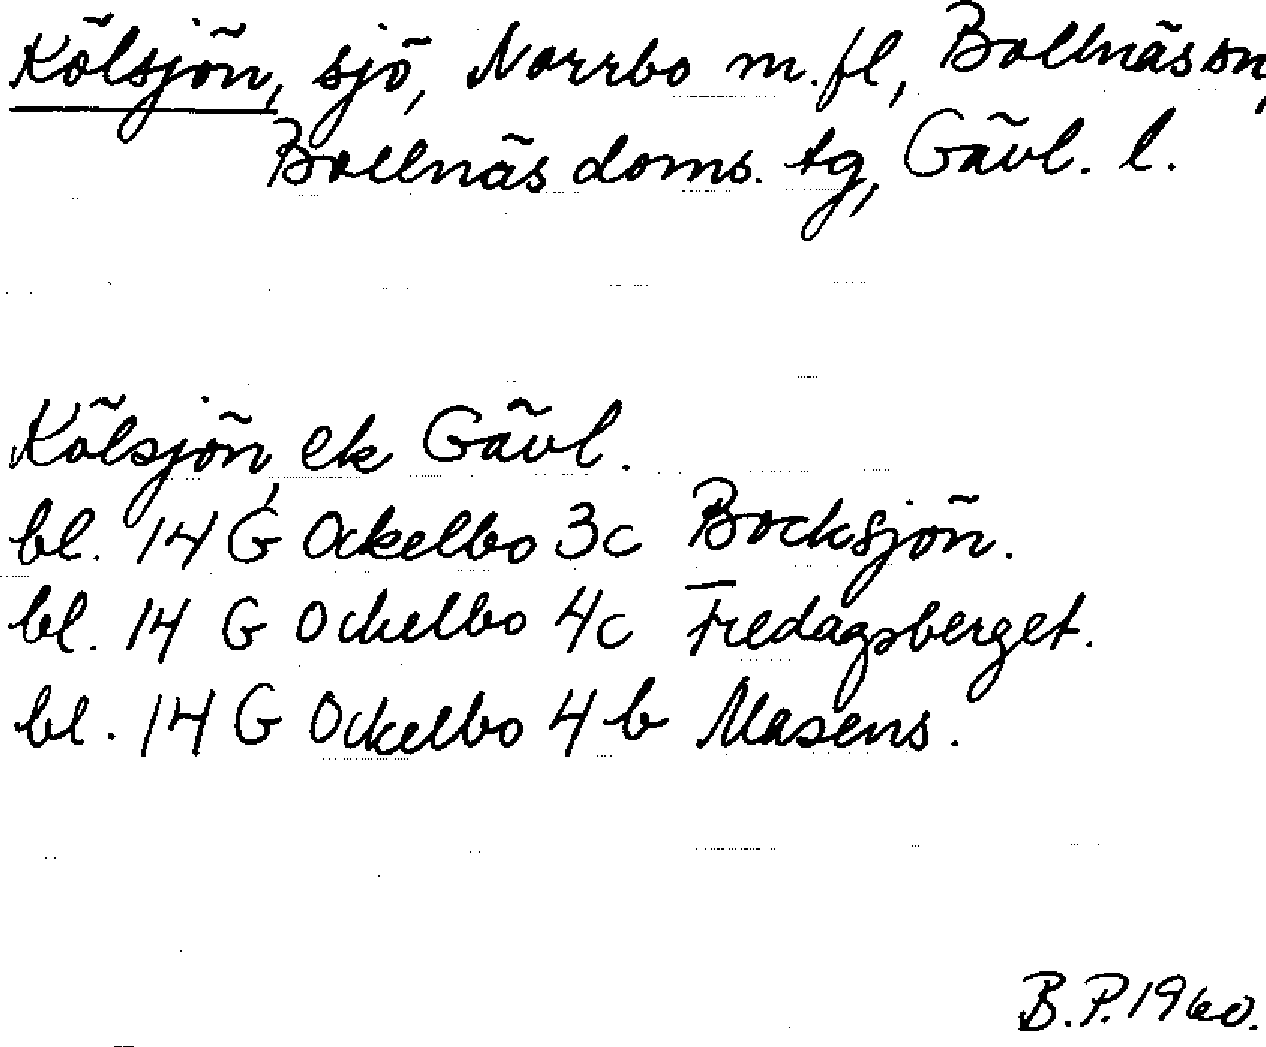 Kölsjön, sjö, Norrbo m.fl, Bollnäs sn,
Bollnäs doms. tg, Gävl. l.
Kölsjön, ek Gävl.
bl. 14 G Ockelbo 3c Bocksjön.
bl. 14 G Ockelbo 4c Fredagsberget.
bl. 14 G Ockelbo 4 b Masens.
B.P. 1960.